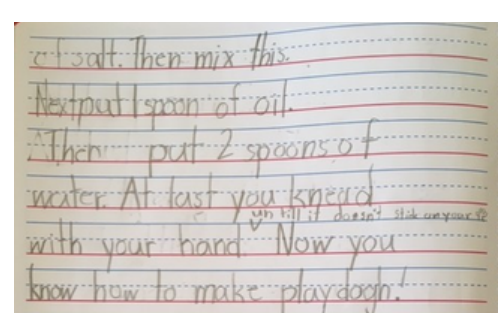 of salt. Then mix this.
Next put 1 spoon of oil.
Then put 2 spoons of
water. At last you knead
un till it doesn't stick on your
with your hand. Now you
know how to make playdogh!